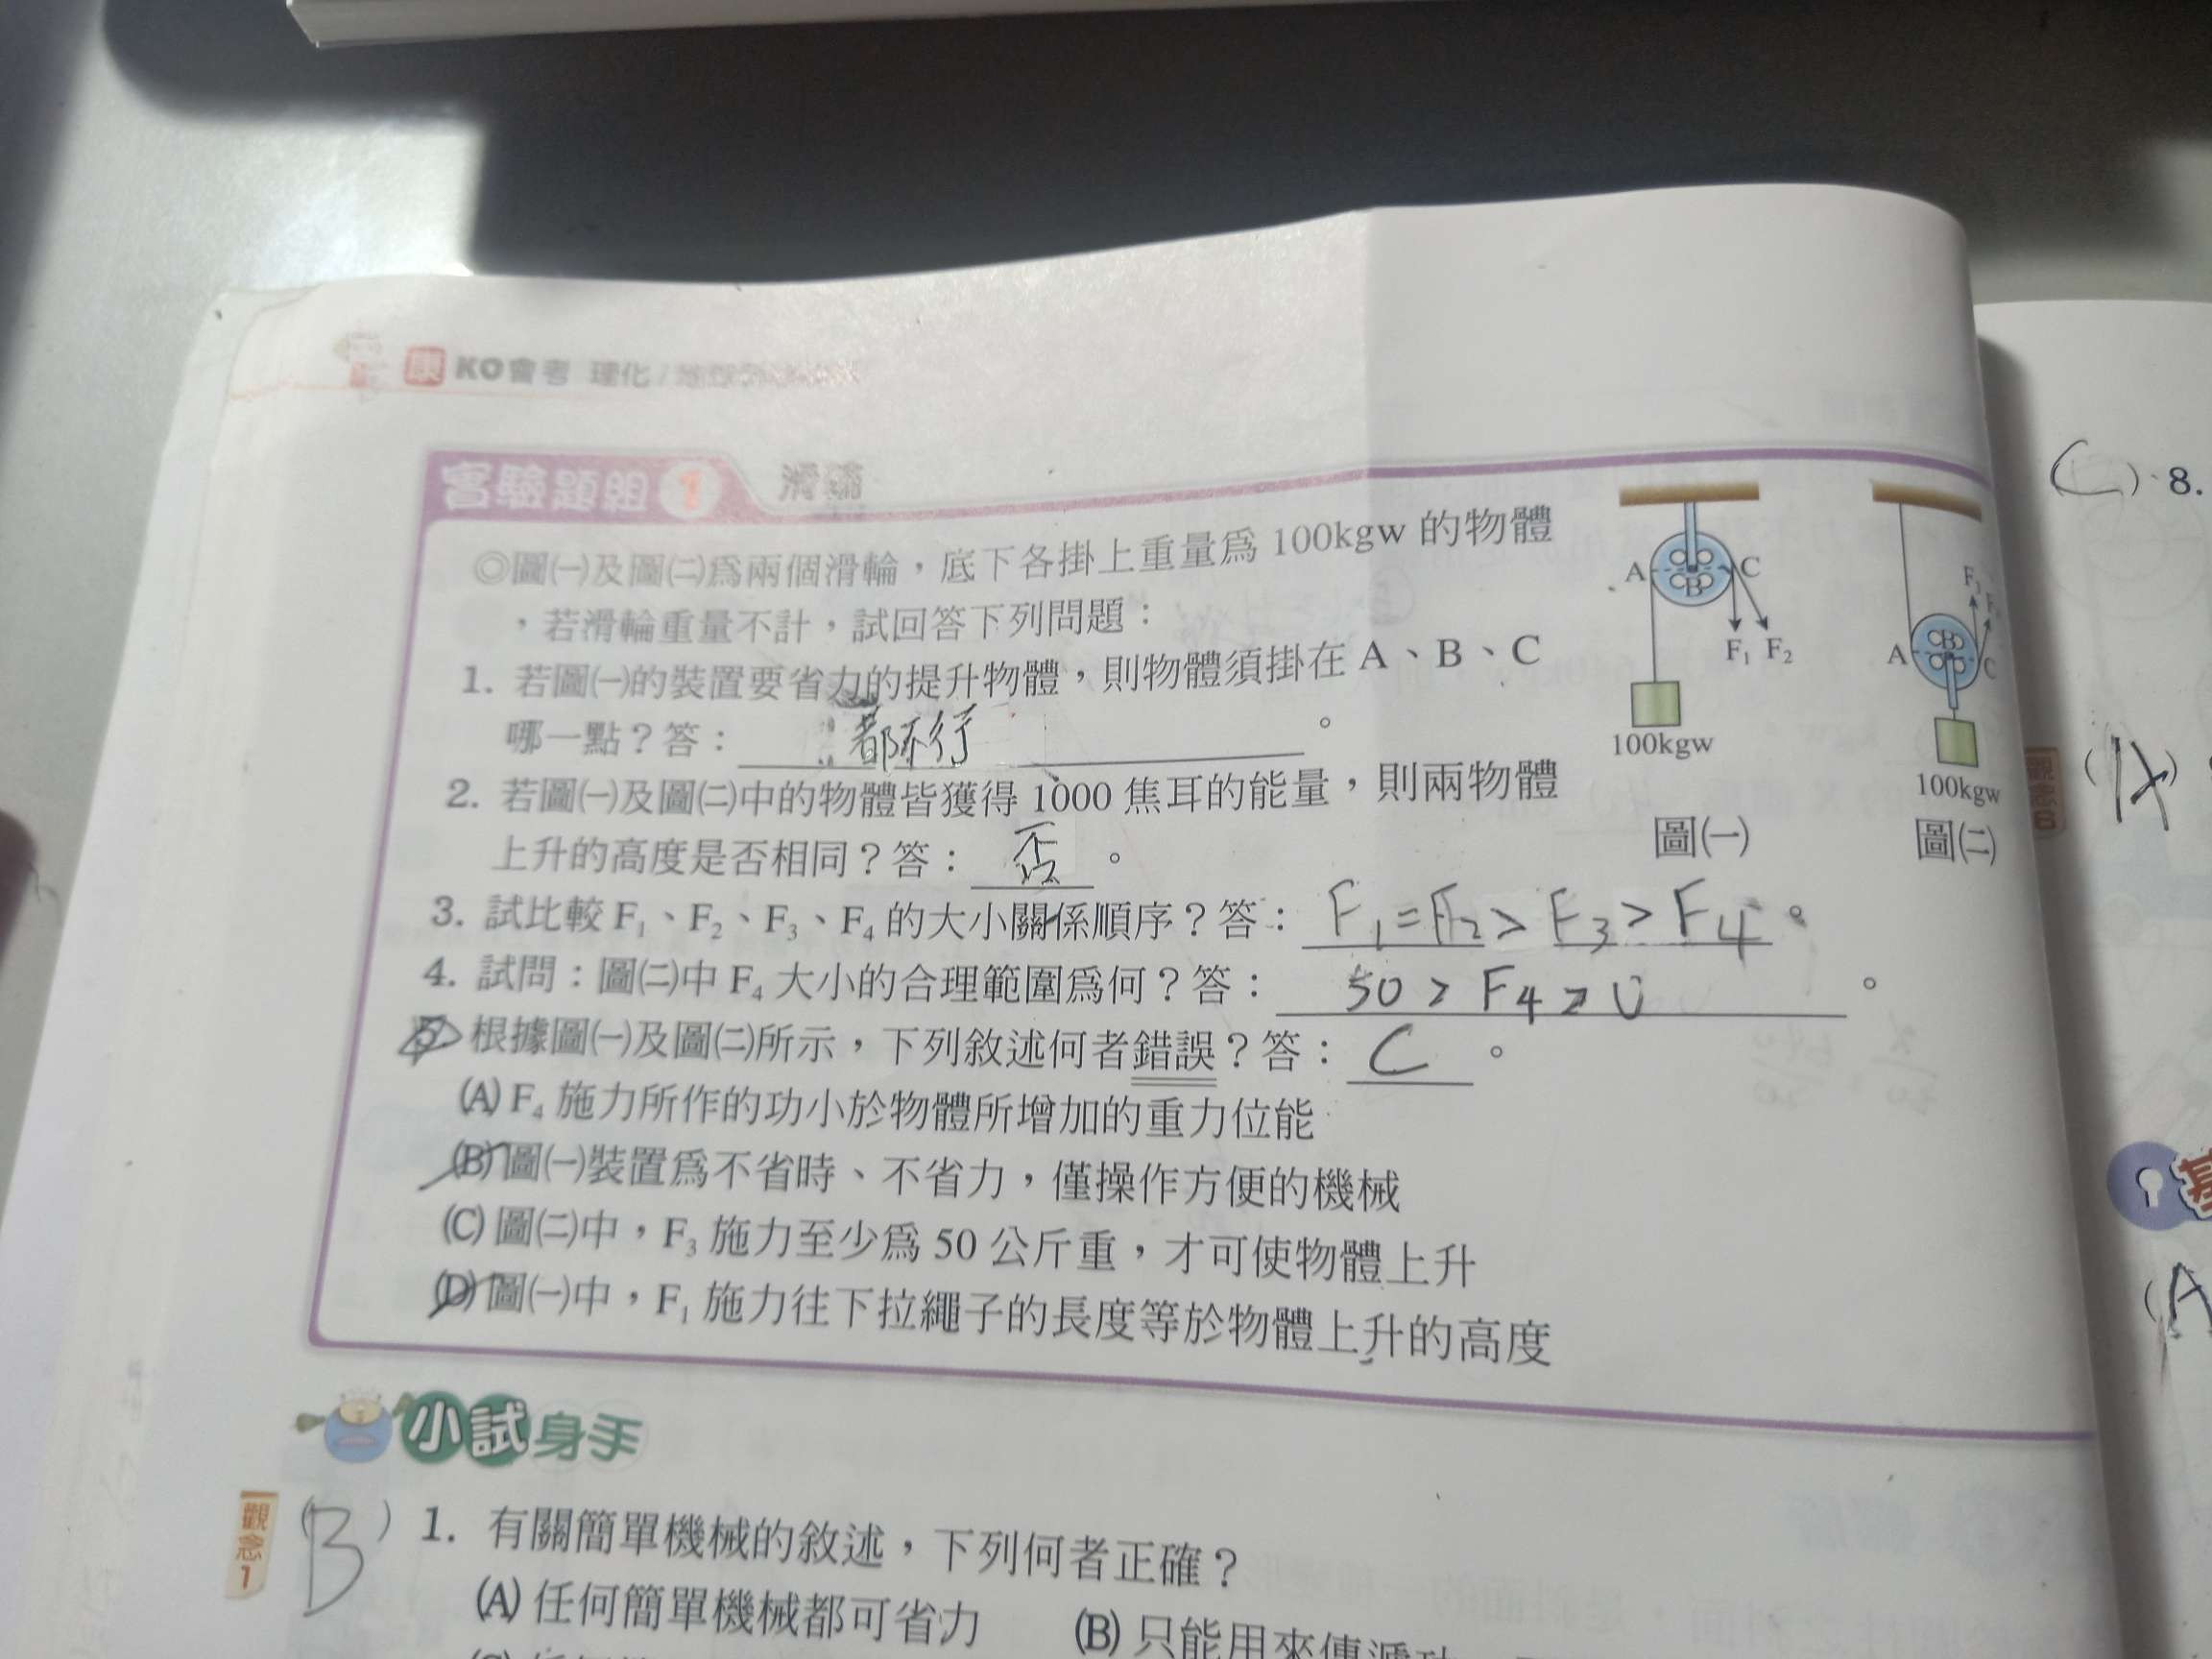 康 KO會考 理化/
實驗題組 1 滑輪
◎圖㈠及圖㈡為兩個滑輪，底下各掛上重量為 100kgw 的物體
，若滑輪重量不計，試回答下列問題：
1. 若圖㈠的裝置要省力的提升物體，則物體須掛在 A、B、C
哪一點？答： 都不行 。
2. 若圖㈠及圖㈡中的物體皆獲得 1000 焦耳的能量，則兩物體
上升的高度是否相同？答： 否 。
3. 試比較 F₁、F₂、F₃、F₄ 的大小關係順序？答： F₁=F₂>F₃>F₄ 。
4. 試問：圖㈡中 F₄ 大小的合理範圍為何？答： 50>F₄>0 。
5. 根據圖㈠及圖㈡所示，下列敘述何者錯誤？答： C 。
(A) F₄ 施力所作的功小於物體所增加的重力位能
(B) 圖㈠裝置為不省時、不省力，僅操作方便的機械
(C) 圖㈡中，F₃ 施力至少為 50 公斤重，才可使物體上升
(D) 圖㈠中，F₁ 施力往下拉繩子的長度等於物體上升的高度
A B C
F₁ F₂
100kgw
圖㈠
F₃
A B C
100kgw
圖㈡
小試身手
觀念1
(B) 1. 有關簡單機械的敘述，下列何者正確？
(A) 任何簡單機械都可省力 (B) 只能用來傳遞
(C) 8.
觀念8
(A)
基
(A